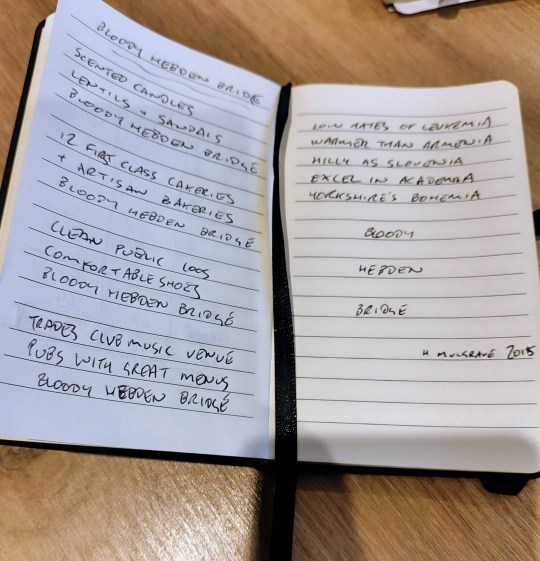 BLOODY HEBDEN BRIDGE
SCENTED CANDLES
LENTILS + SANDALS
BLOODY HEBDEN BRIDGE
12 FIRST CLASS CAKERIES
+ ARTISAN BAKERIES
BLOODY HEBDEN BRIDGE
CLEAN PUBLIC LOOS
COMFORTABLE SHOES
BLOODY HEBDEN BRIDGE
TRADES CLUB MUSIC VENUE
PUBS WITH GREAT MENUS
BLOODY HEBDEN BRIDGE
LOW RATES OF LEUKEMIA
WARMER THAN ARMENIA
HILLY AS SLOVENIA
EXCEL IN ACADEMIA
YORKSHIRE'S BOHEMIA
BLOODY
HEBDEN
BRIDGE
H MUSGRAVE 2015